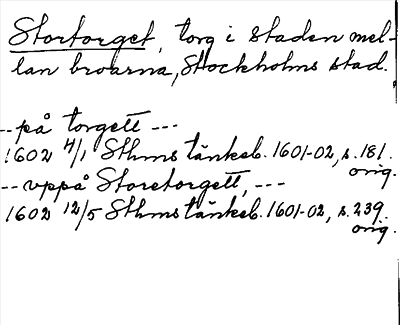 Stortorget, torg i staden mel-
lan broarna, Stockholms stad.
-- på torgett ---
1602 4/1 Sthms tänkeb. 1601-02, s. 181.
orig.
-- vppå Storetorgett, ---
1602 12/5 Sthms tänkeb. 1601-02, s. 239.
orig.